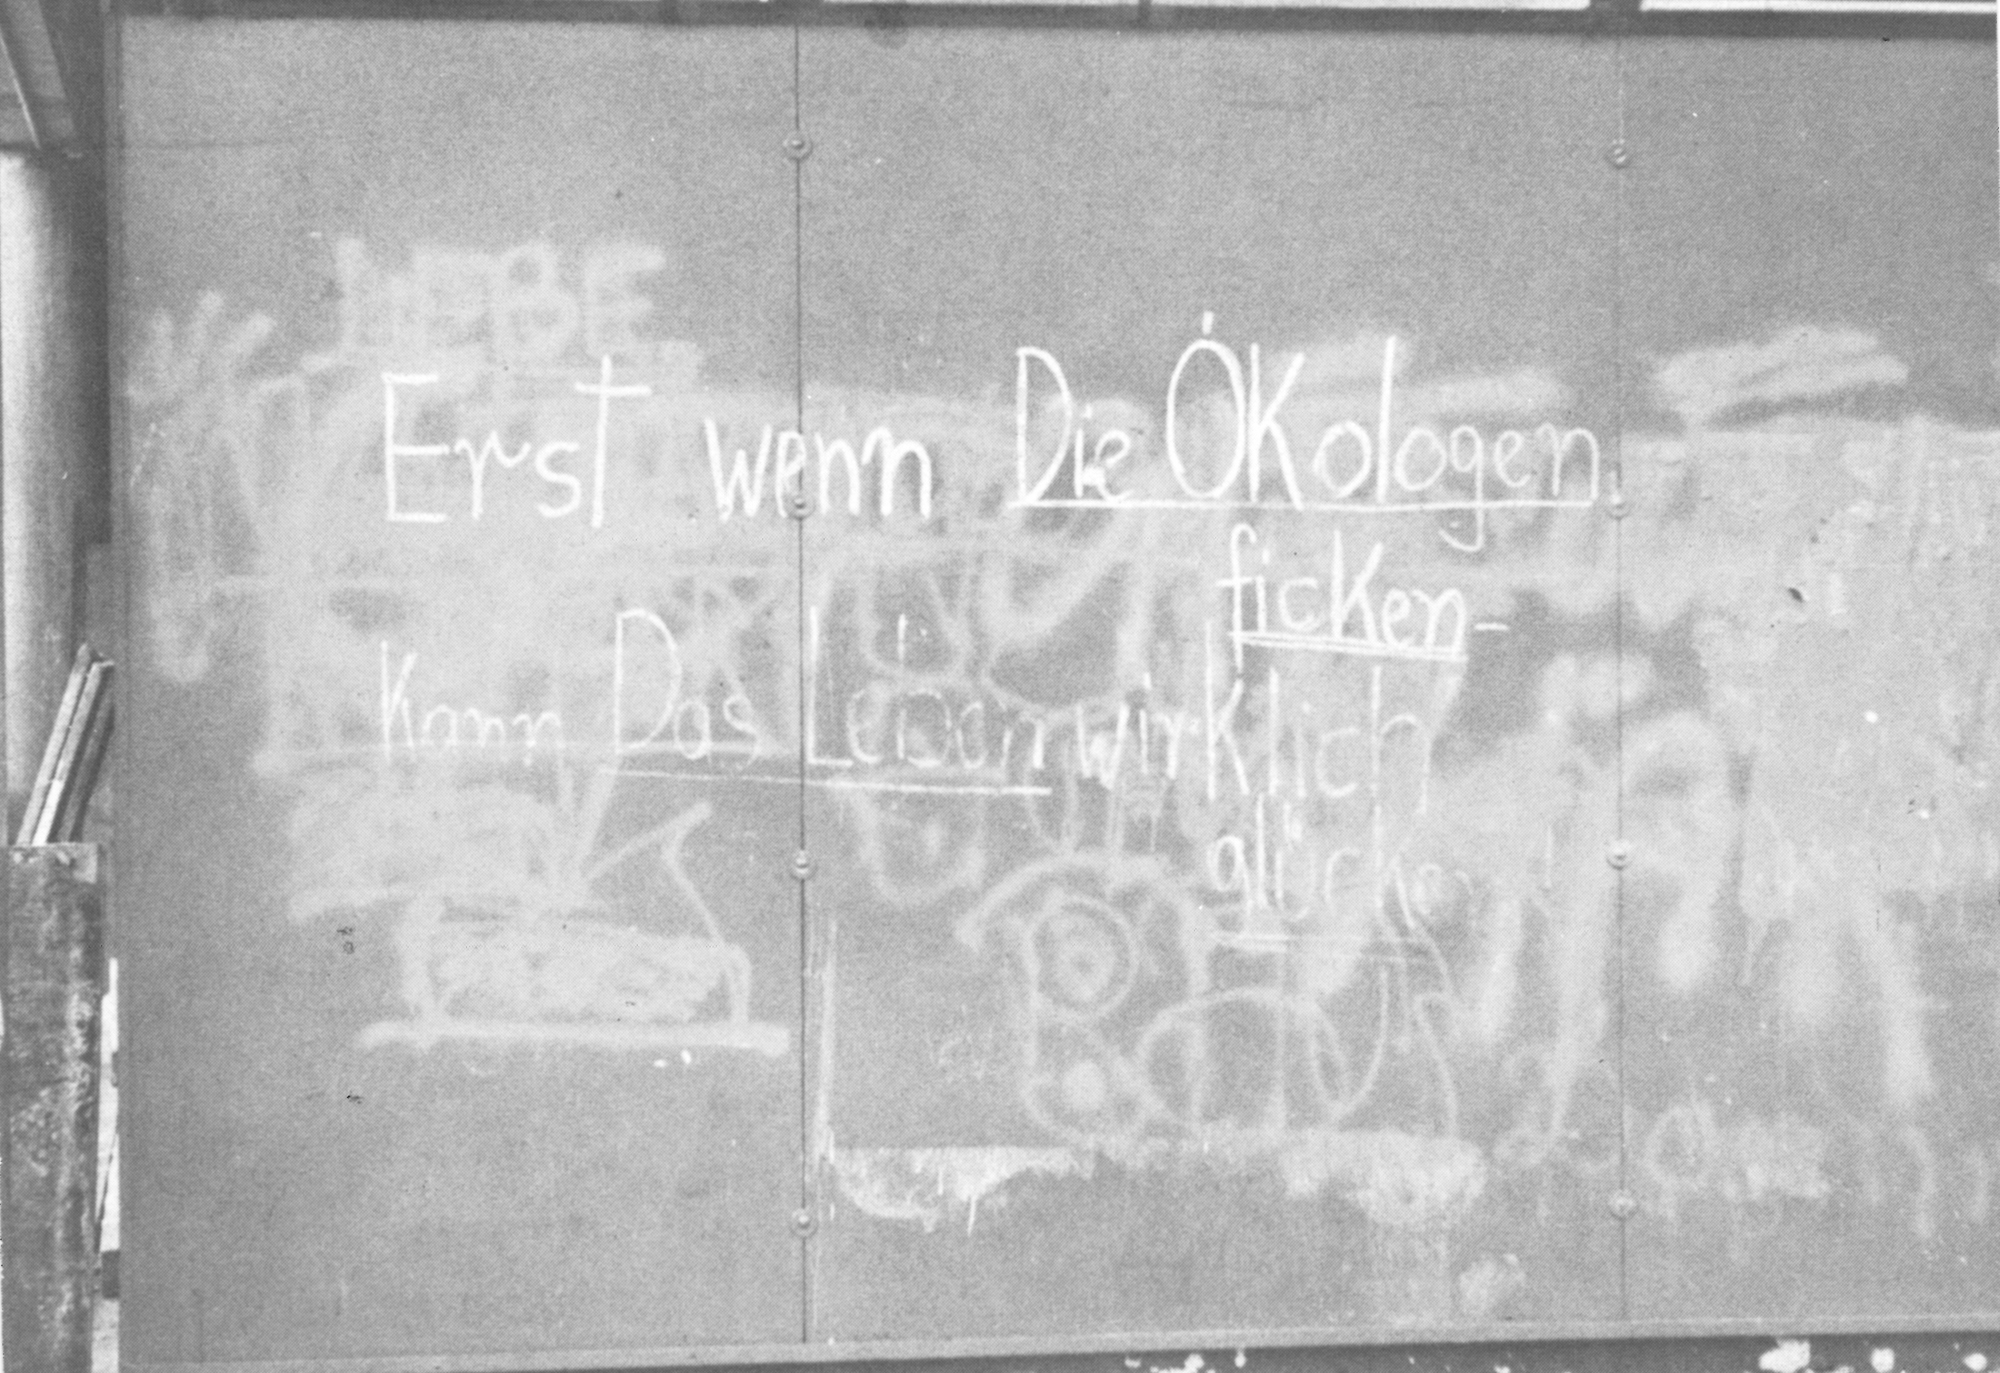 Erst wenn Die ÖKologen
ficken-
Kann Das Leben wirklich
glücken